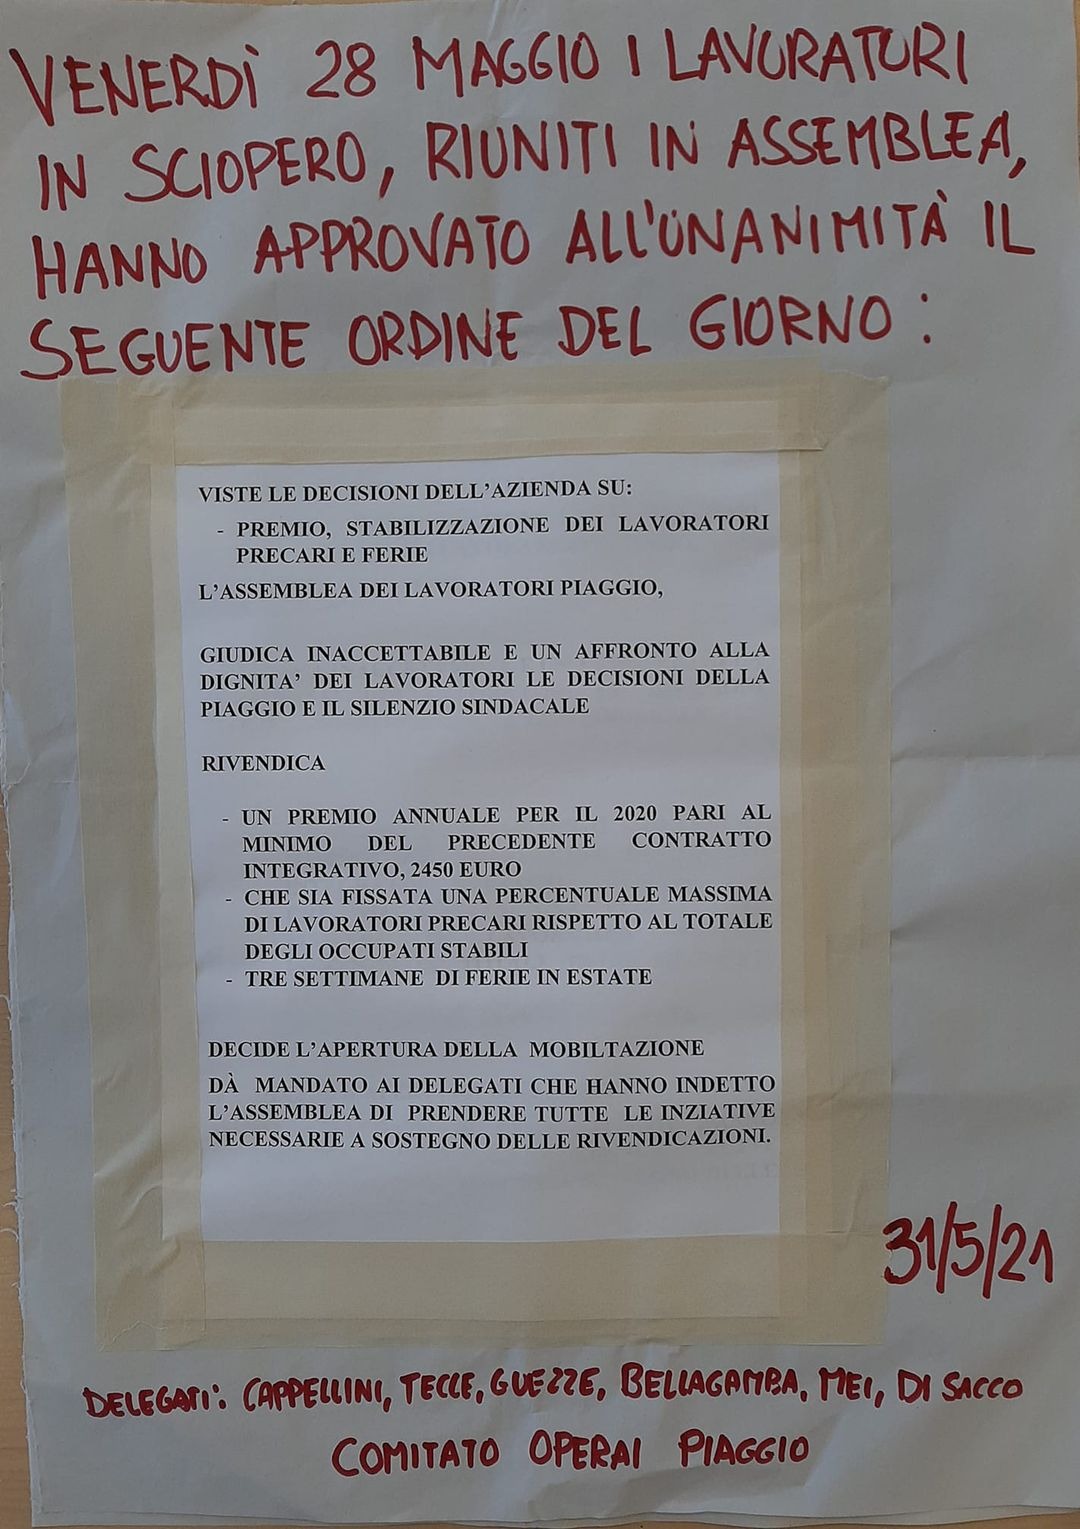 VENERDÌ 28 MAGGIO I LAVORATORI
IN SCIOPERO, RIUNITI IN ASSEMBLEA,
HANNO APPROVATO ALL'UNANIMITÀ IL
SEGUENTE ORDINE DEL GIORNO:
VISTE LE DECISIONI DELL'AZIENDA SU:
- PREMIO, STABILIZZAZIONE DEI LAVORATORI
PRECARI E FERIE
L'ASSEMBLEA DEI LAVORATORI PIAGGIO,
GIUDICA INACCETTABILE E UN AFFRONTO ALLA
DIGNITA' DEI LAVORATORI LE DECISIONI DELLA
PIAGGIO E IL SILENZIO SINDACALE
RIVENDICA
- UN PREMIO ANNUALE PER IL 2020 PARI AL
MINIMO DEL PRECEDENTE CONTRATTO
INTEGRATIVO, 2450 EURO
- CHE SIA FISSATA UNA PERCENTUALE MASSIMA
DI LAVORATORI PRECARI RISPETTO AL TOTALE
DEGLI OCCUPATI STABILI
- TRE SETTIMANE DI FERIE IN ESTATE
DECIDE L'APERTURA DELLA MOBILTAZIONE
DÀ MANDATO AI DELEGATI CHE HANNO INDETTO
L'ASSEMBLEA DI PRENDERE TUTTE LE INZIATIVE
NECESSARIE A SOSTEGNO DELLE RIVENDICAZIONI.
31/5/21
DELEGATI: CAPPELLINI, TECCE, GUEZZE, BELLAGAMBA, MEI, DI SACCO
COMITATO OPERAI PIAGGIO